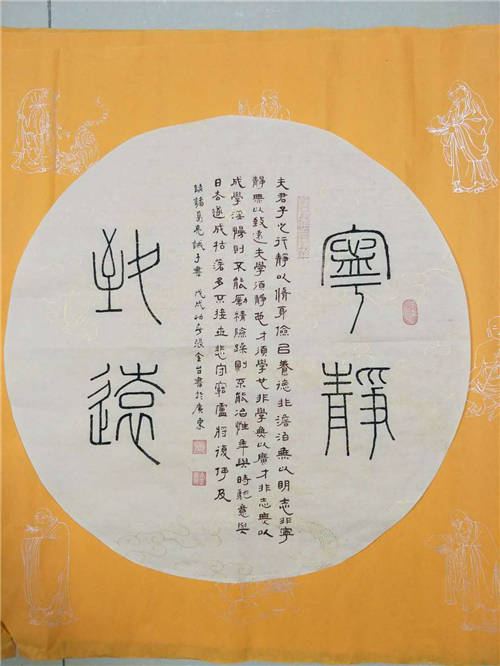 寧靜
夫君子之行靜以脩身儉以養德非澹泊無以明志非寧
靜無以致遠夫學須靜也才須學也非學無以廣才非志無以
成學淫慢則不能勵精險躁則不能冶性年與時馳意與
日去遂成枯落多不接世悲守窮廬將復何及
錄諸葛亮誡子書 戊戌張金台書於廣東
致遠